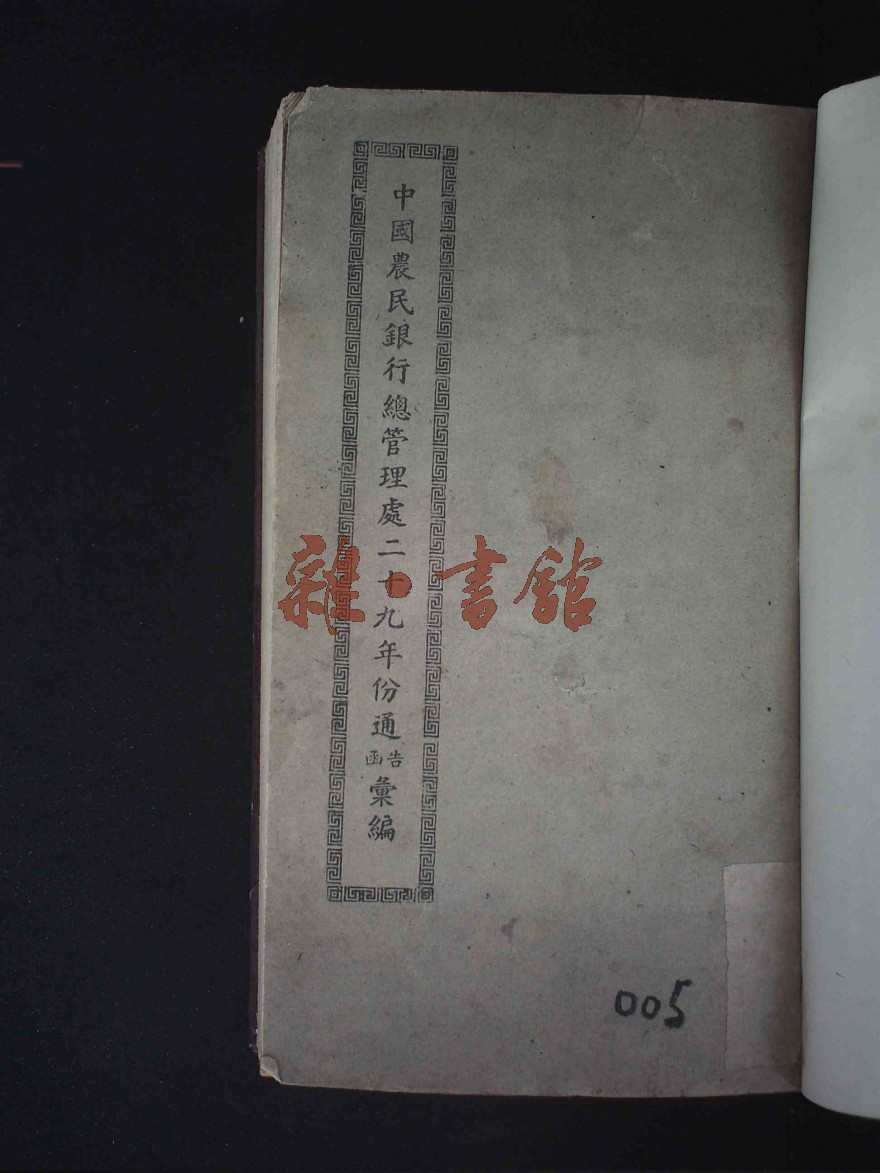 中國農民銀行總管理處二十九年份通告函彙編
雜·書館
005